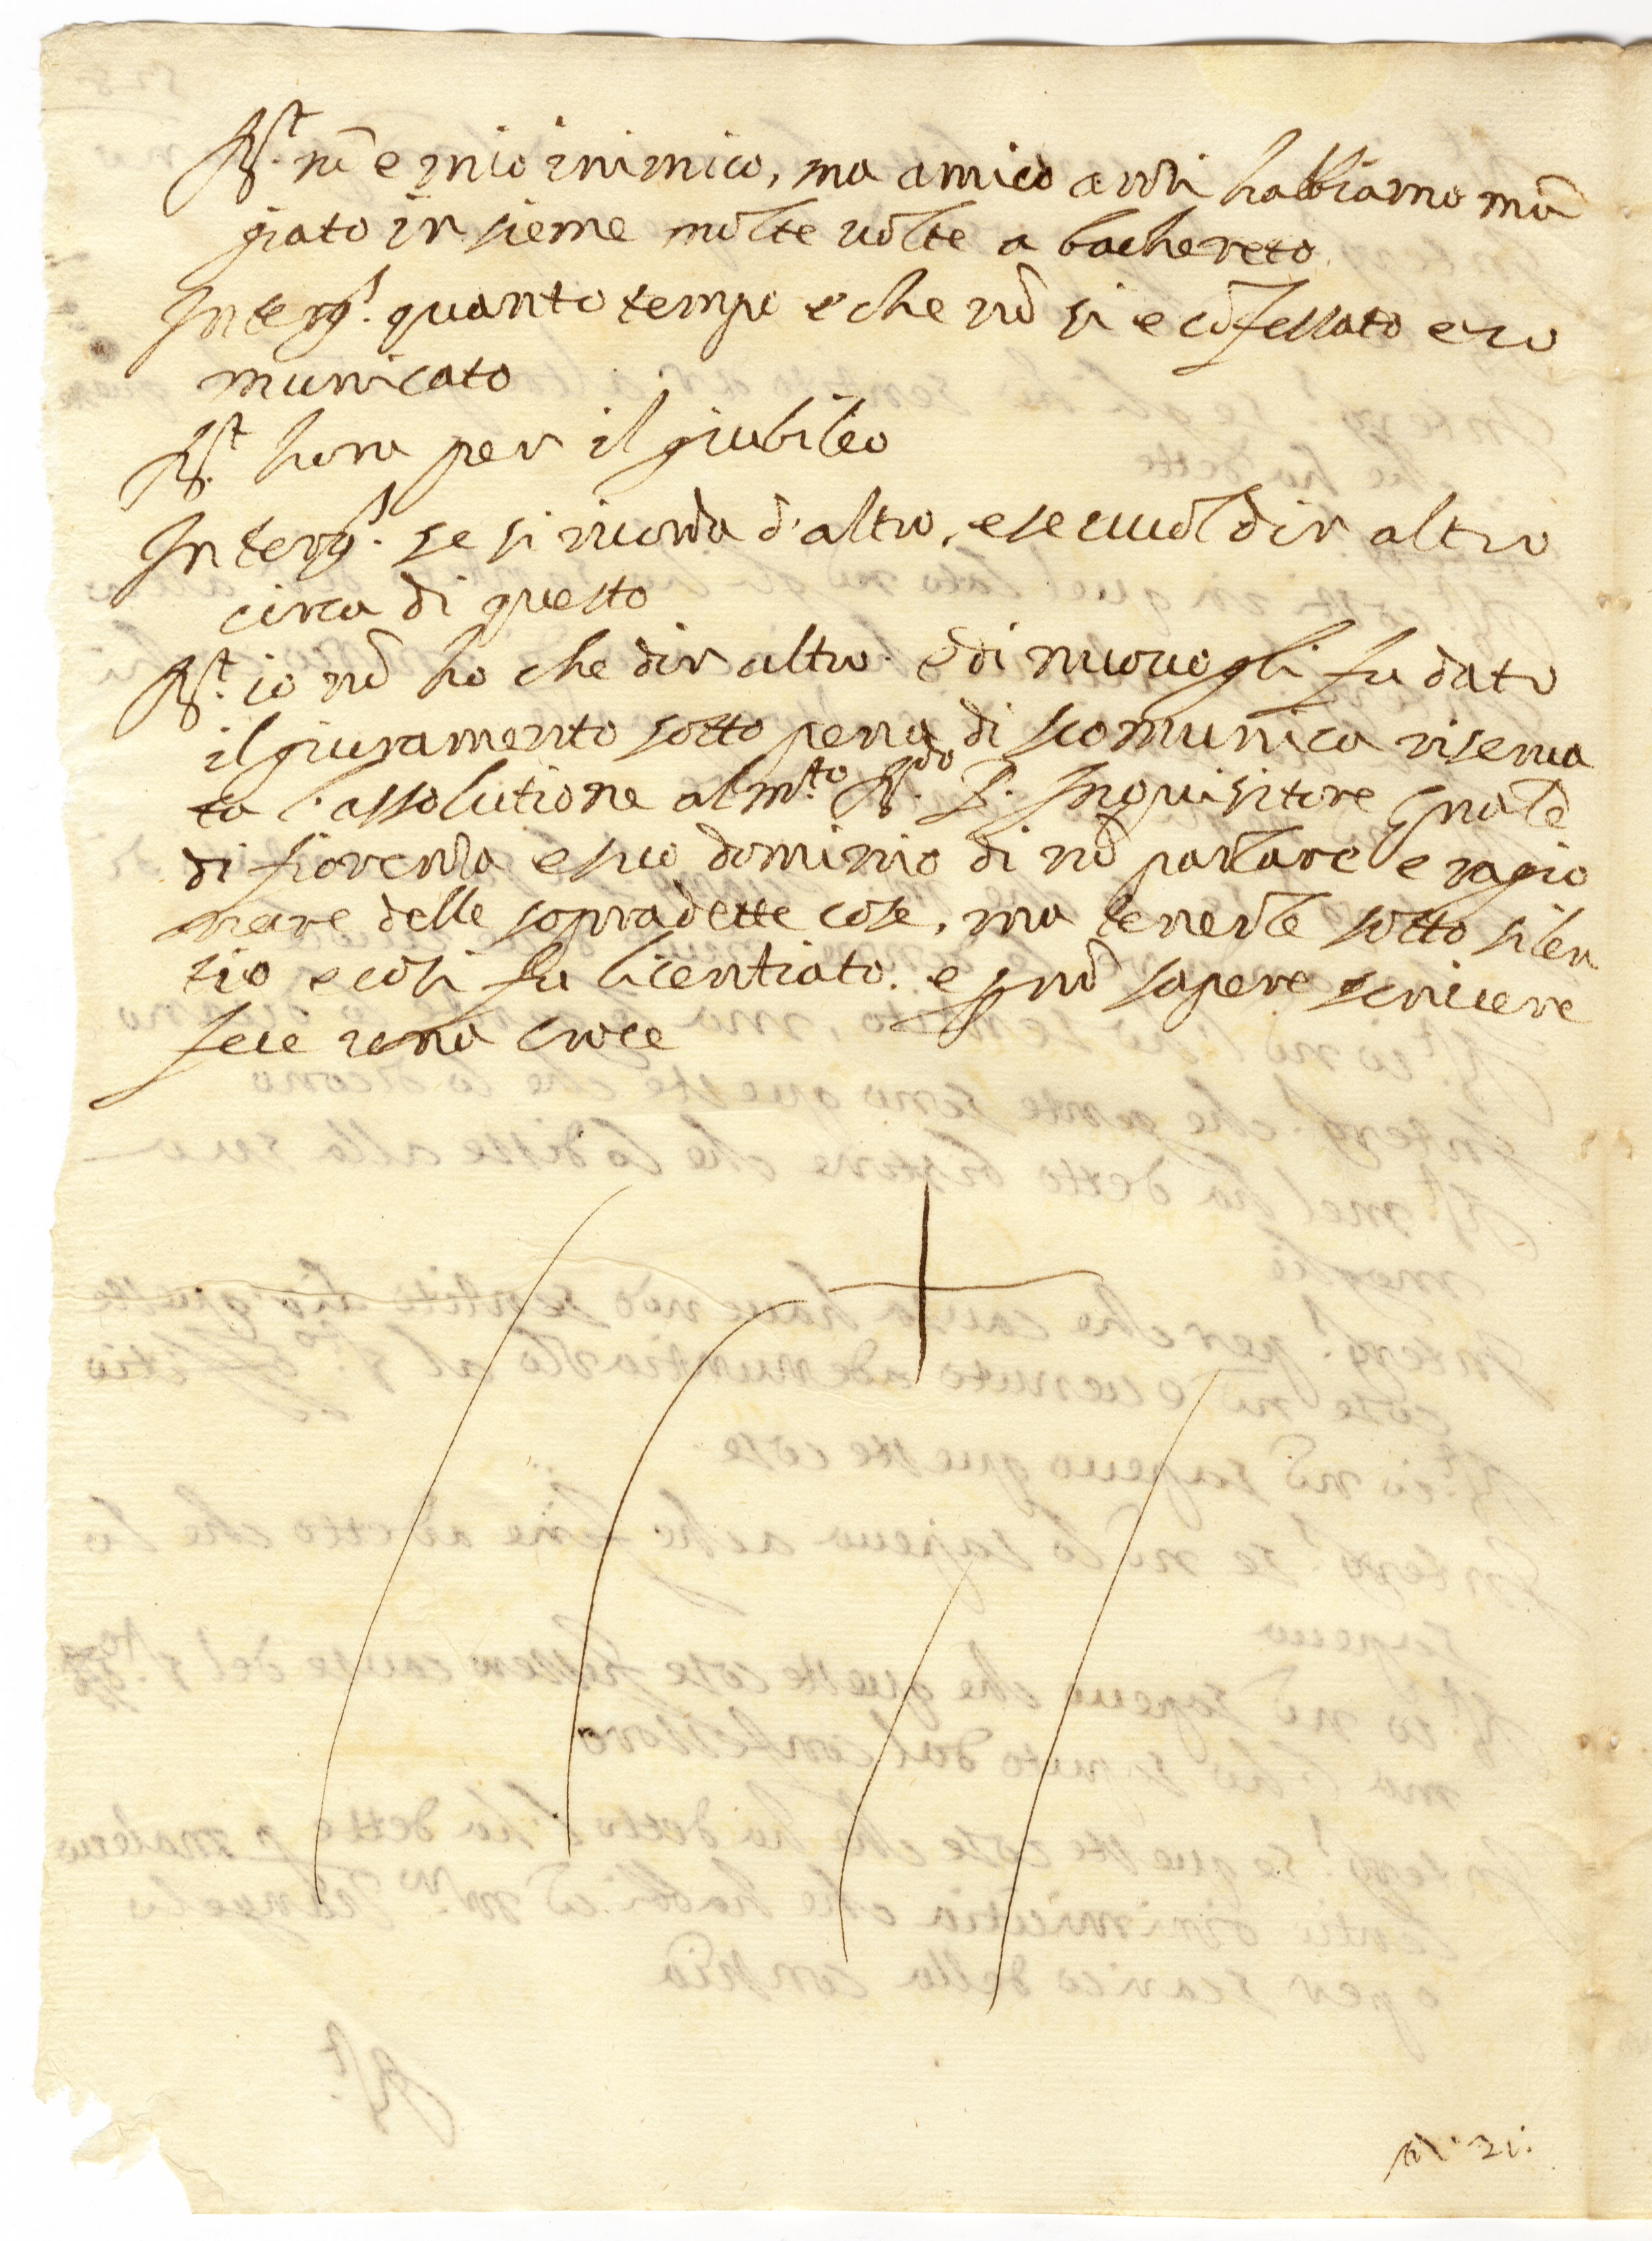 R.st nõ e mio inimico, ma amico anzi habbiamo mã
giato in sieme molte uolte a bachereto
Interg.s quanto tempo e che nõ si e cõfessato e co
municato
R.st hora per il giubileo
Interg.s se si ricorda d'altro, e se vuol dir altro
circa di questo
R.st io nõ ho che dir altro. e di nuouo gli fu dato
il giuramento sotto pena di scomunica riserua
ta l'assolutione al m.to R.do P. Inquisitore gnale
di fiorenza e suo dominio di nõ parlare e ragio
nare delle sopradette cose, ma tenerle sotto silen
tio e cosi fu licentiato. e p nõ sapere scriuere
fece una croce
+
N. 21.